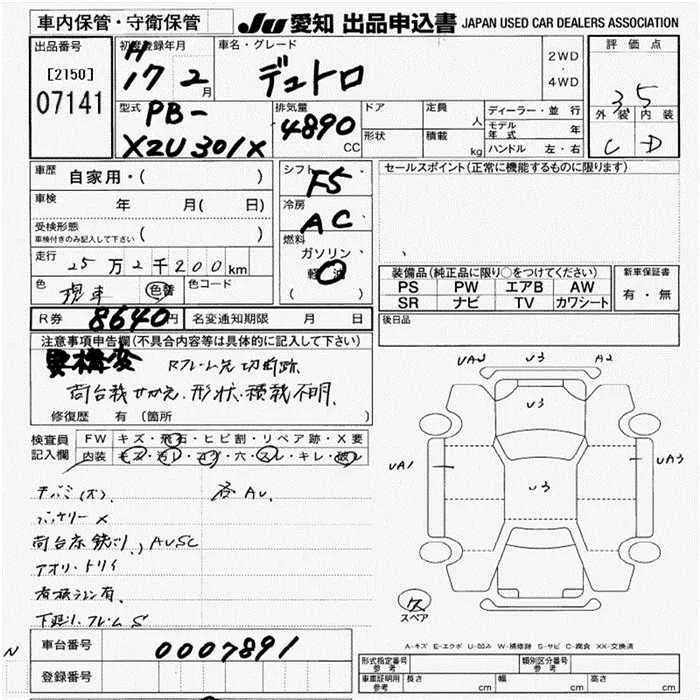 車内保管・守衛保管
JU 愛知 出品申込書 JAPAN USED CAR DEALERS ASSOCIATION
出品番号
[2150]
07141
初度登録年月
H
17 2 月
車名・グレード
デュトロ
2WD
・
4WD
評価点
3.5
外装 内装
C D
型式
PB-
XZU301X
排気量
4890 CC
ドア
定員 人
形状
積載 kg
ディーラー・並行
モデル年式 年
ハンドル 左・右
車歴 自家用・( )
車検 年 月( 日)
受検形態
車検付きのみ記入して下さい ( )
走行 25万2千200km
色 現車 色替 色コード
シフト
F5
冷房
AC
燃料
ガソリン
軽油
( )
セールスポイント(正常に機能するものに限ります)
装備品(純正品に限り○をつけてください)
PS PW エアB AW
SR ナビ TV カワシート
新車保証書
有・無
R券 8640円 名変通知期限 月 日
後日品
注意事項申告欄(不具合内容等は具体的に記入して下さい)
要構変 Rフレーム先切断跡
荷台載せかえ.形状・積載不明.
修復歴 有 (箇所 )
検査員
記入欄
FW キズ・飛石・ヒビ割・リペア跡・X要
内装 キズ・汚レ・コゲ・穴・スレ・キレ・破レ
バッテリーX
荷台床錆び.,AUSC
アオリ・トリイ
下廻り.フレームS
UA2 U3 A2
U3
UA1 U3 UA3
欠
スペア
A-キズ E-エクボ U-凹み W-補修跡 S-サビ C-腐食 XX-交換済
N
車台番号 0007891
登録番号
形式指定番号
参考
類別区分番号
参考
車庫証明用
参考
長さ cm 幅 cm 高さ cm